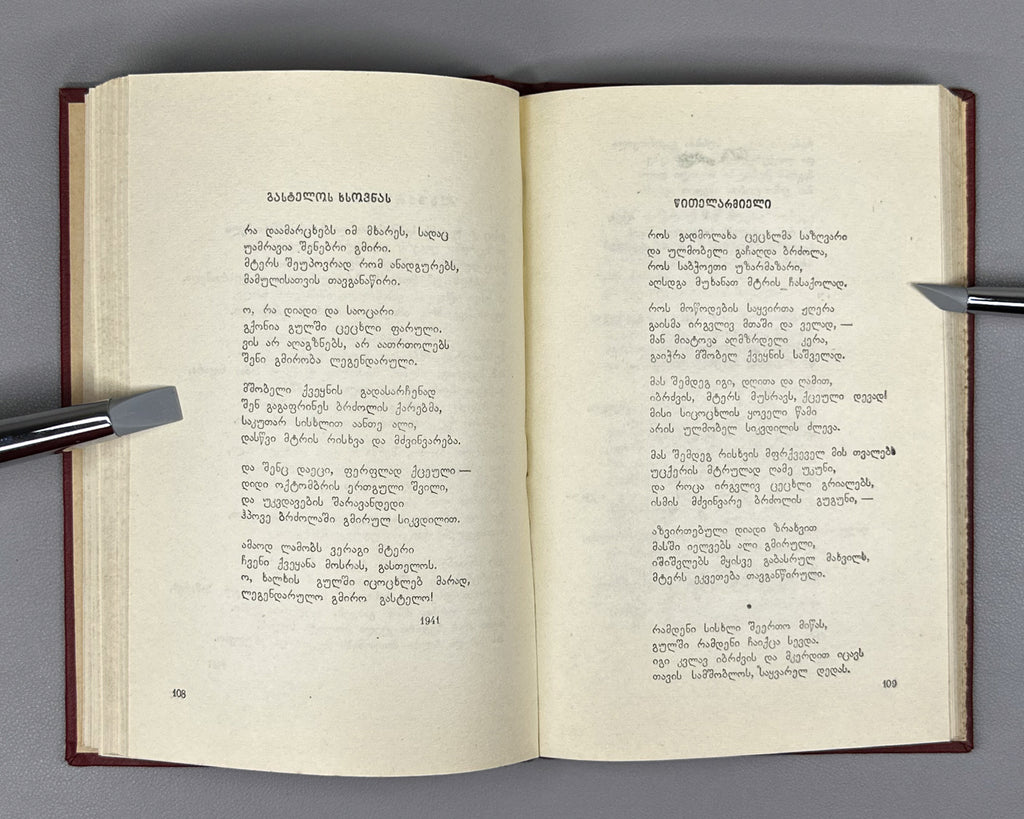 გასტელოს ხსოვნას
რა დაამარცხებს იმ მხარეს, სადაც
უამრავია შენებრი გმირი.
მტერს შეუპოვრად რომ ანადგურებს,
მამულისათვის თავგანაწირი.
ო, რა დიადი და საოცარი
გქონია გულში ცეცხლი ფარული.
ვის არ აღაგზნებს, არ აათრთოლებს
შენი გმირობა ლეგენდარული.
მშობელი ქვეყნის გადასარჩენად
შენ გაგაფრინეს ბრძოლის ქარებმა,
საკუთარ სისხლით აანთე ალი,
დასწვი მტრის რისხვა და მძვინვარება.
და შენც დაეცი, ფერფლად ქცეული —
დიდი ოქტომბრის ერთგული შვილი,
და უკვდავების შარავანდედი
ჰპოვე ბრძოლაში გმირულ სიკვდილით.
ამაოდ ლამობს ვერაგი მტერი
ჩვენი ქვეყანა მოსრას, გასთელოს.
ო, ხალხის გულში იცოცხლებ მარად,
ლეგენდარულო გმირო გასტელო!
1941
108
წითელარმიელი
როს გადმოლახა ცეცხლმა საზღვარი
და ულმობელი გაჩაღდა ბრძოლა,
როს საბჭოეთი უზარმაზარი,
აღსდგა მუხანათ მტრის ჩასაქოლად.
როს მოწოდების საყვირთა ჟღერა
გაისმა ირგვლივ მთაში და ველად, —
მან მიატოვა აღმზრდელი კერა,
გაიჭრა მშობელ ქვეყნის საშველად.
მას შემდეგ იგი, დღითა და ღამით,
იბრძვის, მტერს მუსრავს, ქცეული დევად!
მისი სიცოცხლის ყოველი წამი
არის ულმობელ სიკვდილის ძლევა.
მას შემდეგ რისხვის მფრქვეველ მის თვალებს
უცქერის მტრულად ღამე უკუნი,
და როცა ირგვლივ ცეცხლი გრიალებს,
ისმის მძვინვარე ბრძოლის გუგუნი, —
აზვირთებული დიადი ზრახვით
მასში იელვებს ალი გმირული,
იშიშვლებს მყისვე გაბასრულ მახვილს,
მტერს ეკვეთება თავგანწირული.
•
რამდენი სისხლი შეერთო მიწას,
გულში რამდენი ჩაიქცა სევდა.
იგი კვლავ იბრძვის და მკერდით იცავს
თავის სამშობლოს, საყვარელ დედას.
109